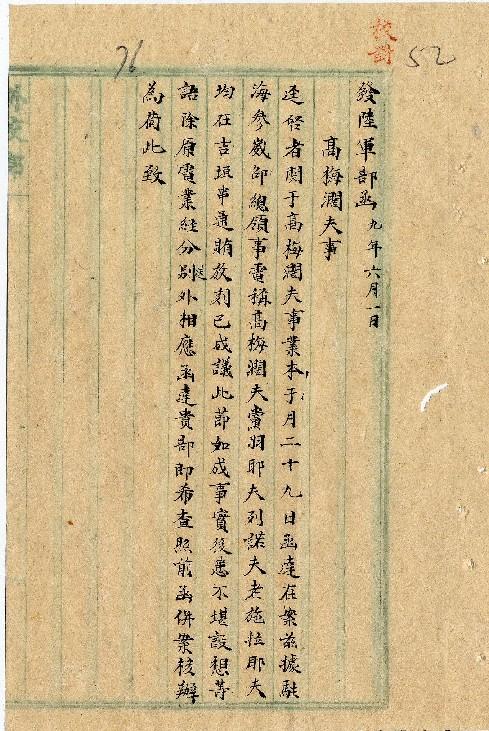 校對
52
76
發陸軍部函 九年六月一日
高梅瀾夫事
逕啓者關于高梅瀾夫事業本于月二十九日函達在案茲據駐
海參崴邵總領事電稱高梅瀾夫黨羽耶夫列諾夫老施拉耶夫
均在吉垣串通賄放刻已成議此節如成事實後患不堪設想等
語除原電業經分別送外相應函達貴部即希查照前函併案核辦
為荷此致